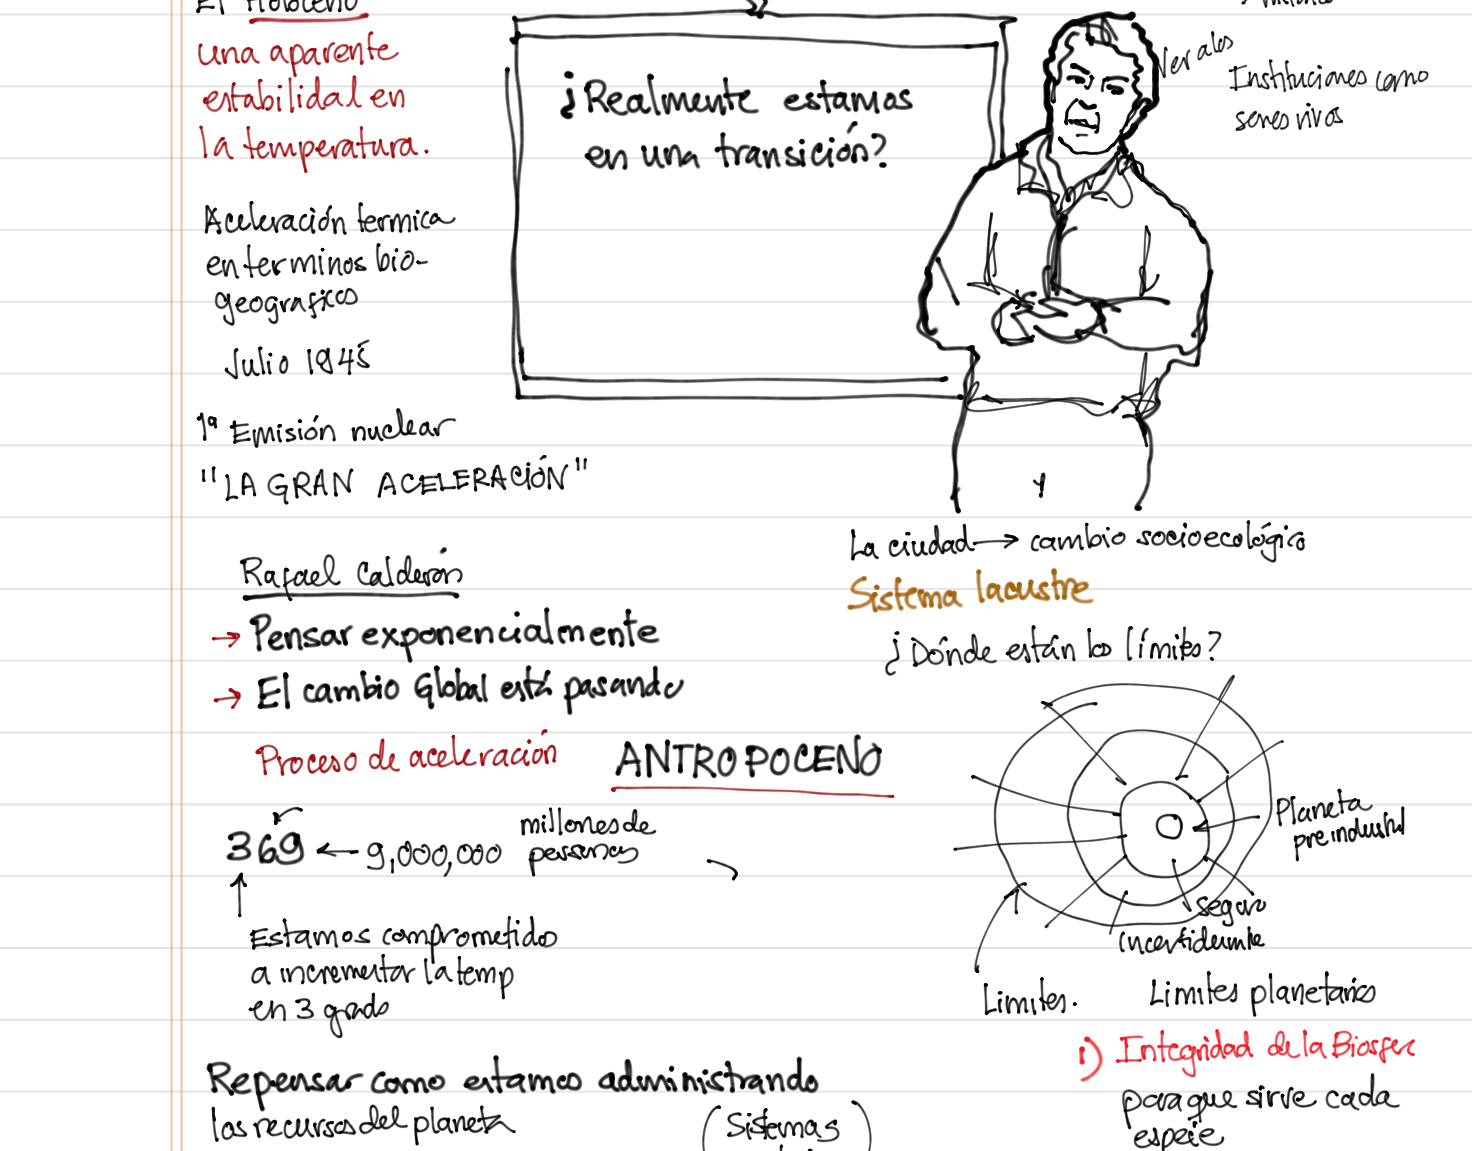 El Holoceno
una aparente
estabilidal en
la temperatura.
Aceleración termica
en terminos bio-
geograficos
Julio 1945
1ª Emisión nuclear
"LA GRAN ACELERACIÓN"
¿Realmente estamos
en una transición?
Ver a los
Instituciones como
seres vivos
y
La ciudad → cambio socioecológico
Sistema lacustre
¿Dónde están los límites?
Rafael Calderón
→ Pensar exponencialmente
→ El cambio Global está pasando
Proceso de aceleración
ANTROPOCENO
369 ← 9,000,000 millones de
personas
Estamos comprometido
a incrementar la temp
en 3 grados
Planeta
preindustrial
seguro
incertidumbre
Limites.
Limites planetarios
1) Integridad de la Biosfer
para que sirve cada
especie
Repensar como estamos administrando
los recursos del planeta
(Sistemas)